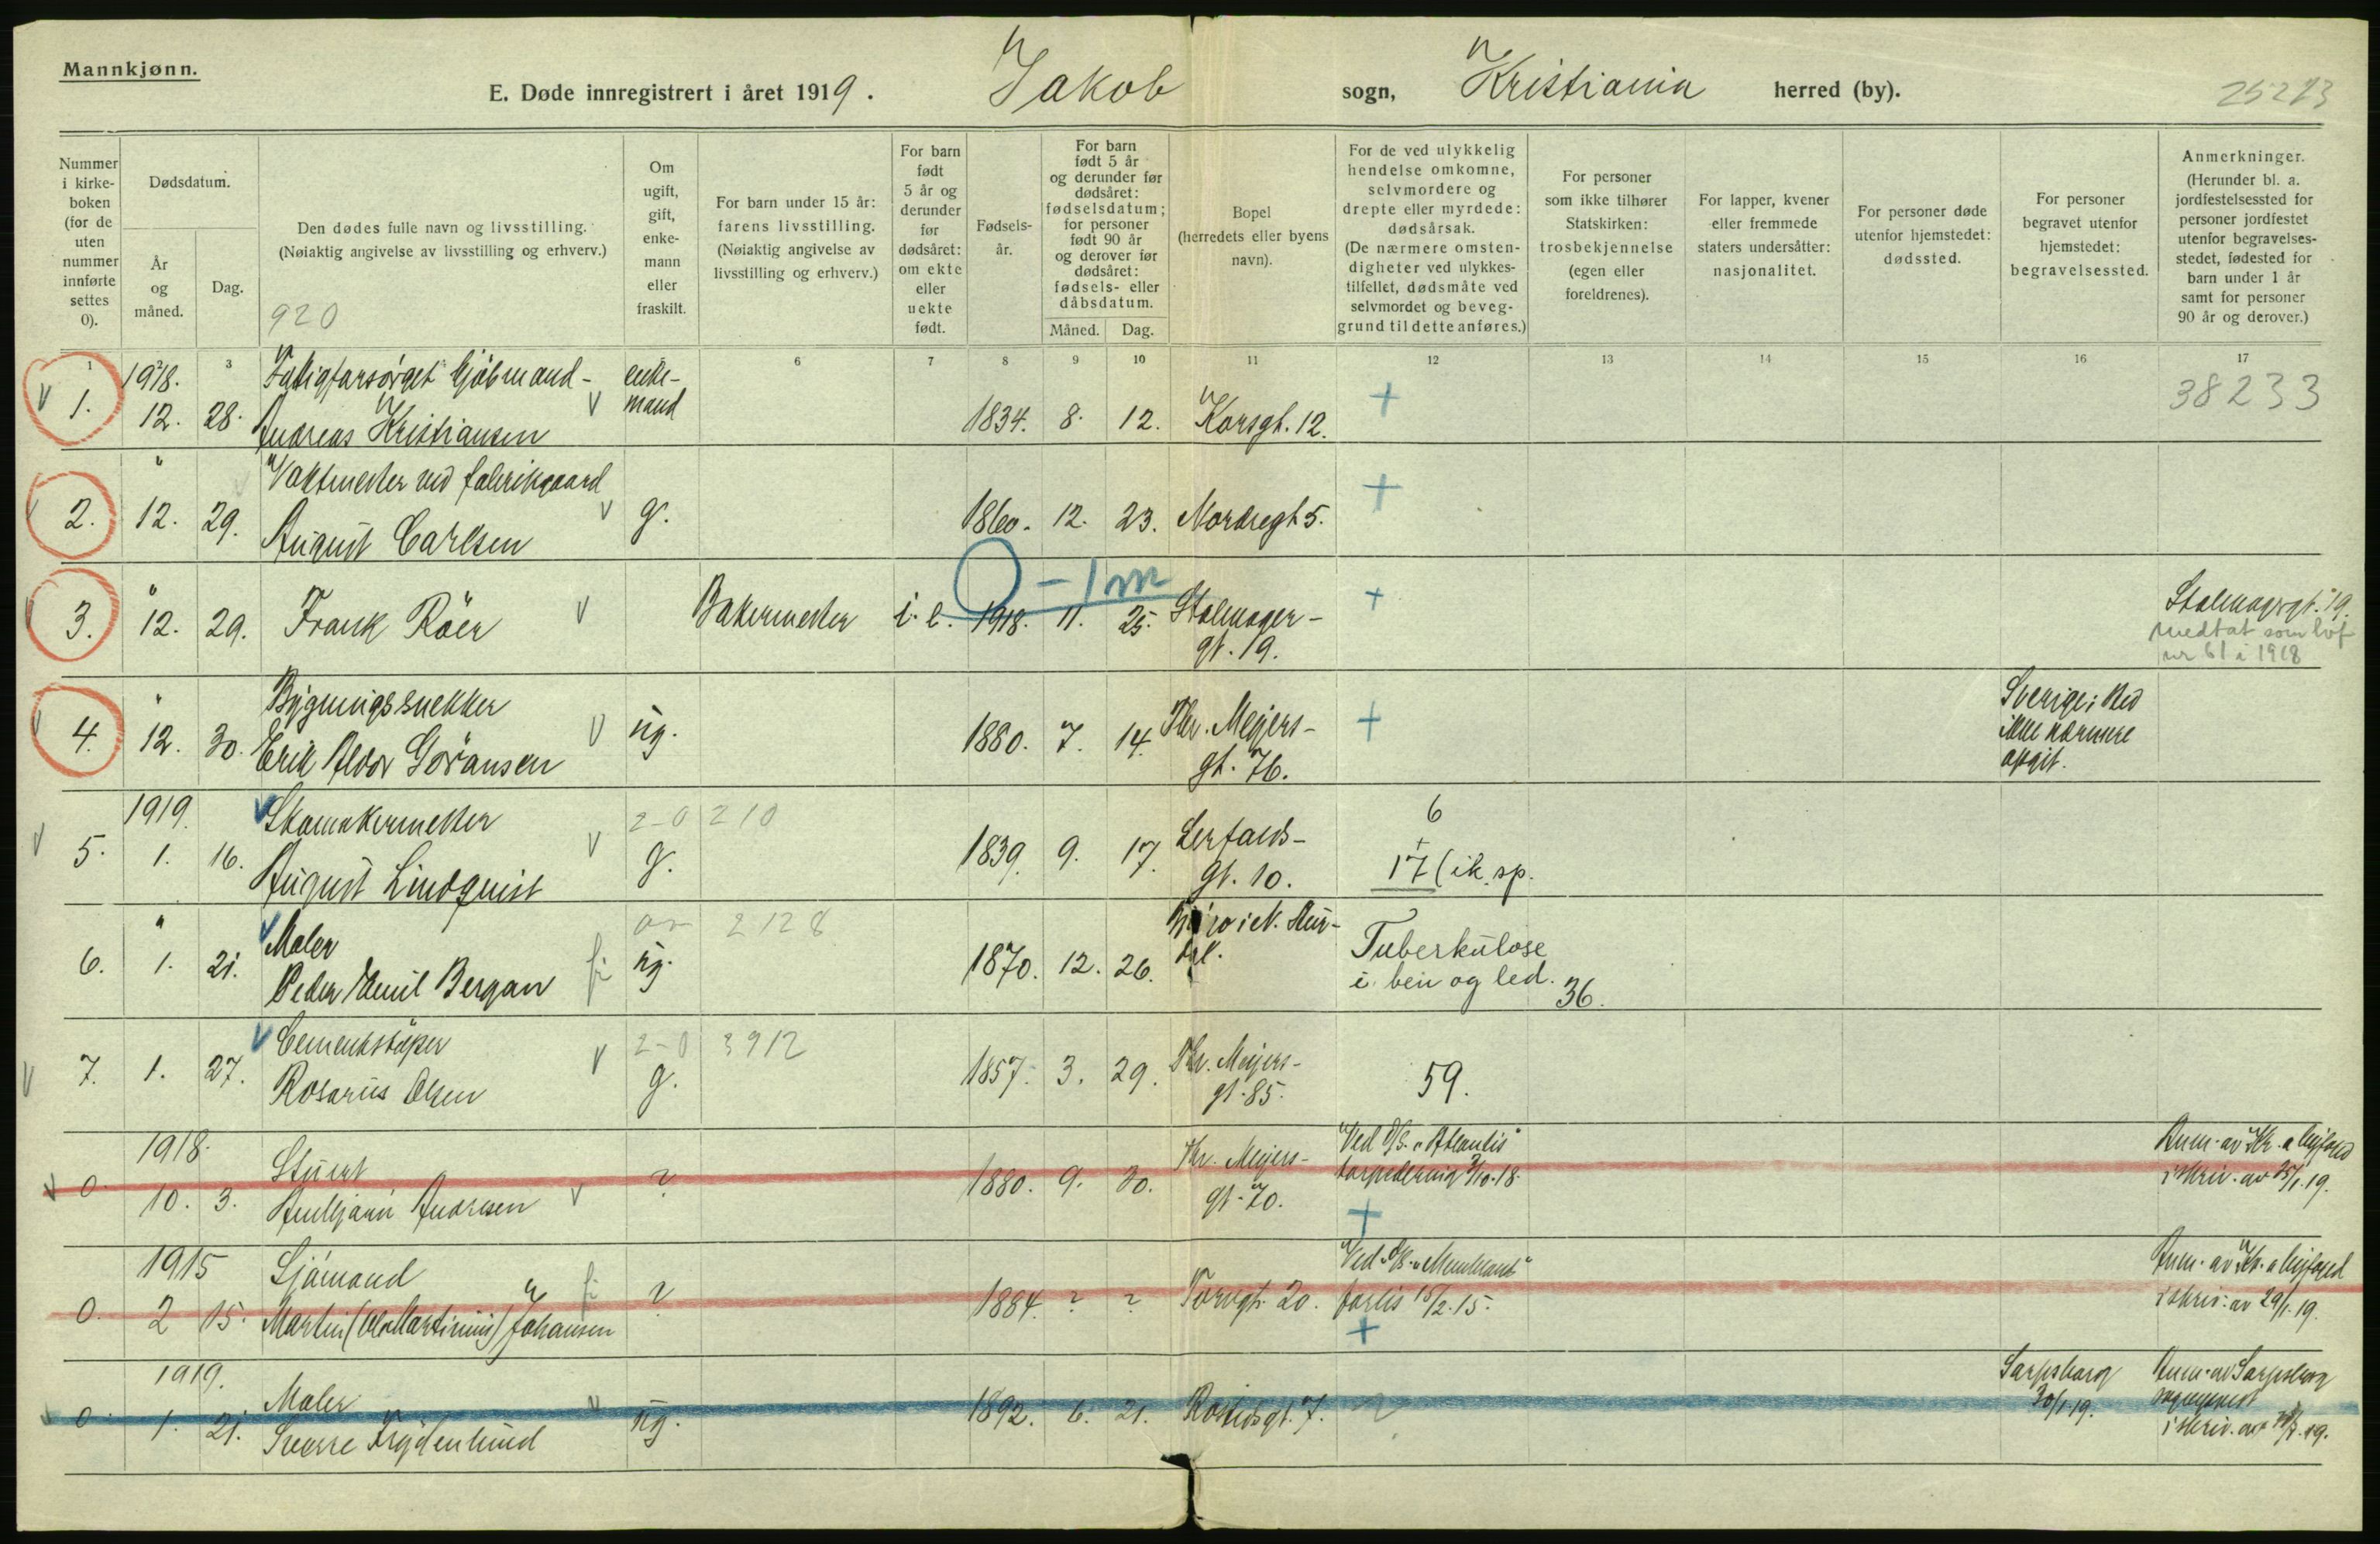 Mannkjønn.
E. Døde innregistrert i året 1919. Jakob sogn, Kristiania herred (by).
25223
Nummer i kirke-boken (for de uten nummer innførte settes 0).
Dødsdatum.
År og måned.
Dag.
Den dødes fulle navn og livsstilling.
(Nøiaktig angivelse av livsstilling og erhverv.)
920
Om ugift, gift, enke-mann eller fraskilt.
For barn under 15 år: farens livsstilling. (Nøiaktig angivelse av livsstilling og erhverv.)
For barn født 5 år og derunder før dødsåret: om ekte eller uekte født.
Fødsels-år.
For barn født 5 år og derunder før dødsåret: fødselsdatum; for personer født 90 år og derover før dødsåret: fødsels- eller dåbsdatum.
Måned.
Dag.
Bopel (herredets eller byens navn).
For de ved ulykkelig hendelse omkomne, selvmordere og drepte eller myrdede: dødsårsak. (De nærmere omsten-digheter ved ulykkes-tilfellet, dødsmåte ved selvmordet og beveg-grund til dette anføres.)
For personer som ikke tilhører Statskirken: trosbekjennelse (egen eller foreldrenes).
For lapper, kvener eller fremmede staters undersåtter: nasjonalitet.
For personer døde utenfor hjemstedet: dødssted.
For personer begravet utenfor hjemstedet: begravelsessted.
Anmerkninger. (Herunder bl. a. jordfestelsessted for personer jordfestet utenfor begravelses-stedet, fødested for barn under 1 år samt for personer 90 år og derover.)
1 3 6 7 8 9 10 11 12 13 14 15 16 17
1918. enke-
1. 12. 28. Andreas Kristiansen mand 1834. 8. 12. Korsgt. 12. + 38233
" Vaktmester ved fabrikgaard
2. 12. 29. August Carlsen g. 1860. 12. 23. Nordregt 5. +
0 - 1 m
" 3. 12. 29. Frank Röer Bakermester i. e. 1918. 11. 25. Stolmager-
gt. 19. + Stolmagrgt. 19.
medtat som
nr 61 i 1918
" Bygningssnekker
4. 12. 30. Erik Aldor Göransen ug. 1880. 7. 14. Thr. Meyers-
gt. 76. + Sverige; sted
ikke nærmere
opgit.
1919. Skomakermester 2-0 210
5. 1. 16. August Lindquist g. 1839. 9. 17. Lerfalds-
gt. 10. 6
+
17 (ik. sp.
" Maler 2128
6. 1. 21. Peder Emil Bergan ug. 1870. 12. 26. Tuberkulose
i ben og led. 36.
Cementstøper 2-0 3912
7. 1. 27. Rosarius Olsen g. 1857. 3. 29. Thr. Meyers-
gt. 85. 59.
1918. Stuert
0. 10. 3. Andresen ? 1880. 9. 30. Thr. Meyers-
gt. 70. Ved D/S. "Atlantis"
torpedering 3/10.18.
+ Anm. av Kr.a
i skriv. av 25/1.19.
1915 Sjömand
0. 2 15. Martin (Ole Martinius) Johansen ? 1884. ? ? Torvgt. 20. Ved
forlis 15/2.15.
+ Anm. av Kr.a
i skriv. av 29/1.19.
1919. Maler
0. 1. 21. Sverre Frydenlund ug. 1892. 6. 21. gt. 7. Sarpsborg
30/1 19. Anm. av Sarpsborg
sogneprest
i skriv. av